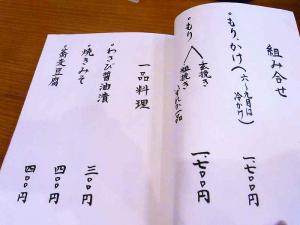 組み合せ
もり、かけ(六〜九月は冷かけ)
一、七〇〇円
もり
玄挽き
粗挽き
一、七〇〇円
一品料理
わさび醤油漬
三〇〇円
焼きみそ
四〇〇円
蕎麦豆腐
四〇〇円